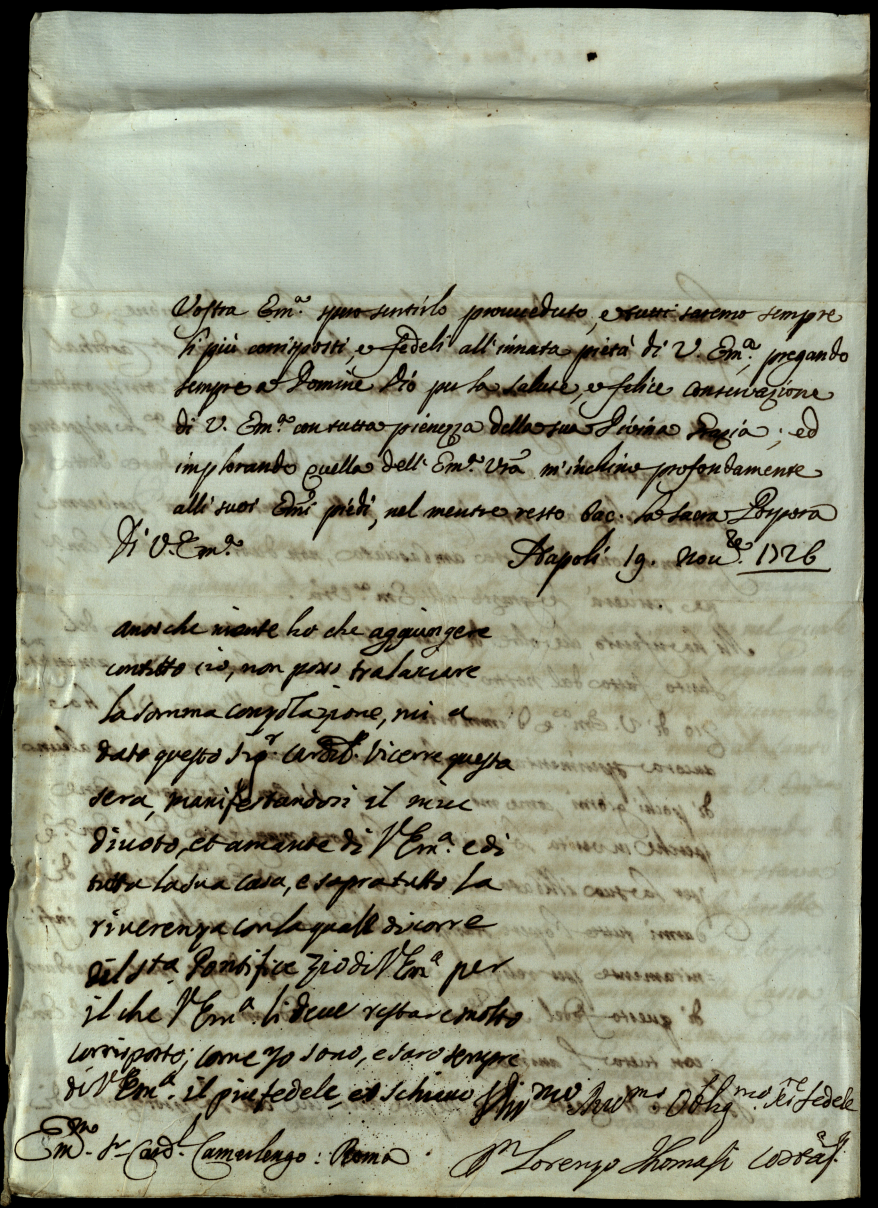 Vostra Em.ª spero sentirlo proveduto, e tutti saremo sempre
li più corrisposti, e fedeli all'innata pietà di V. Em.ª, pregando
sempre a Domine Dio per la salute, e felice conservazione
di V. Em.ª con tutta pienezza della sua Divina Grazia; ed
implorando quella dell'Em.ª Vrã m'inchino profondamente
alli suoi Emi piedi, nel mentre resto bac. la Sacra Porpora
Di V. Em.ª
Napoli 19. Nov.re 1726
ancor che niente ho che aggiungere
contutto ciò, non posso tralasciare
la somma consolazione, mi a
dato questo Sig.r Card.l Vicerre questa
sera, manifestandosi il
divoto, et amante di V Em.ª e di
tutta la sua Casa, e sopra tutto La
riverenza con la quale discorre
del Sta. Pontifice Zio di V Em.ª per
il che V Em.ª li deve restare molto
corrisposto; come yo sono, e saro sempre
di V Em.ª il piu fedele, et schiavo
Oblig.mo fedele
Em.mo Sr Card.l Camerlengo: Roma
Lorenzo Thomasi